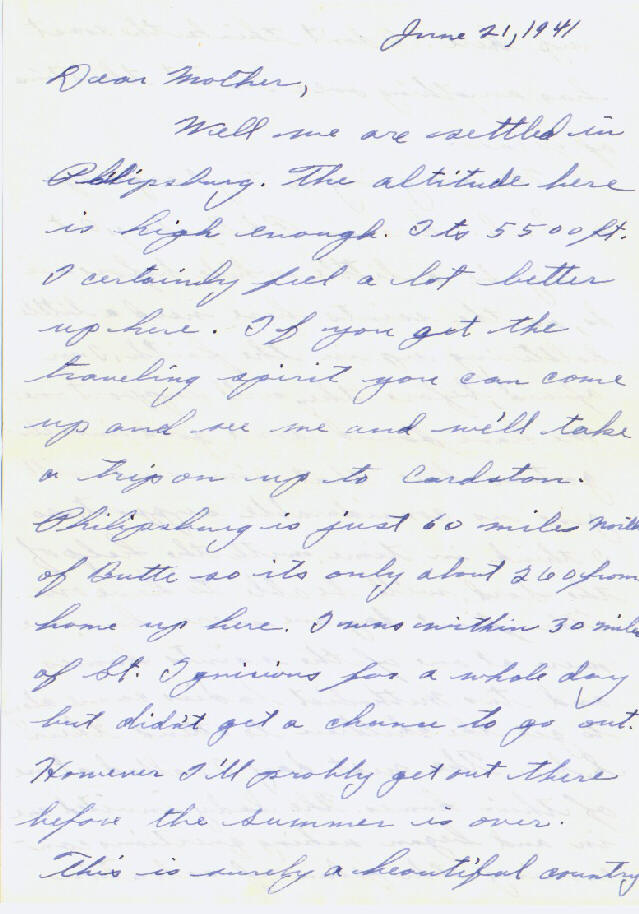 June 21, 1941
Dear Mother,
Well we are settled in
Philipsburg. The altitude here
is high enough. Its 5500 ft.
I certainly feel a lot better
up here. If you get the
traveling spirit you can come
up and see me and we'll take
a trip on up to Cardston.
Philipsburg is just 60 miles North
of Butte so its only about 260 from
home up here. I was within 30 miles
of St. Ignicious for a whole day
but didn't get a chance to go out.
However I'll probly get out there
before the summer is over.
This is surely a beautiful country